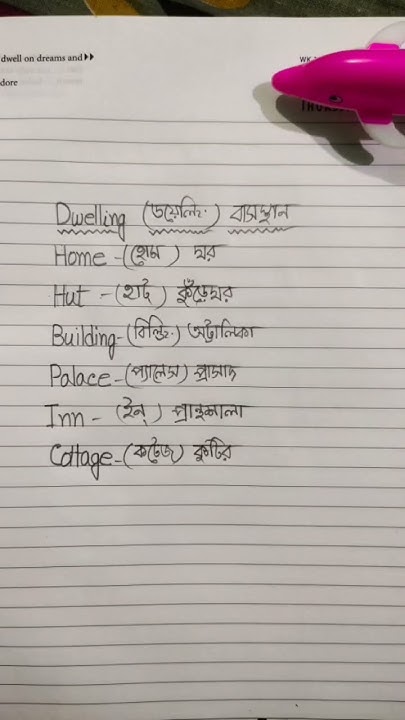 dwell on dreams and
dore
WK
THURSD
Dwelling (ডয়েলিং) বাসস্থান
Home - (হোম) ঘর
Hut - (হাট) কুঁড়েঘর
Building - (বিল্ডিং) অট্টালিকা
Palace - (প্যালেস) প্রাসাদ
Inn - (ইন্) পান্থশালা
Cottage - (কটেজ) কুটির